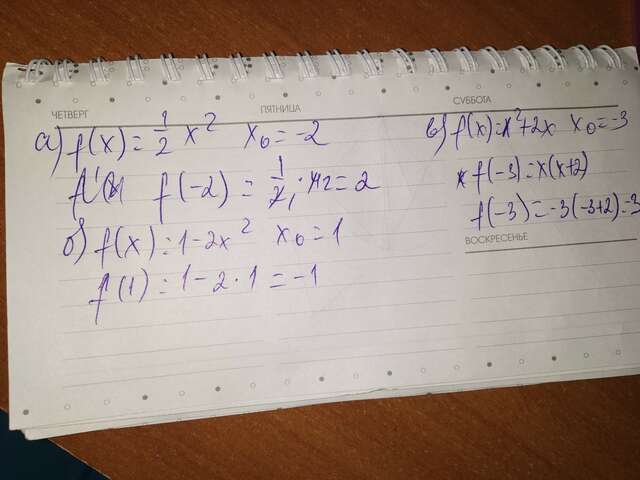 ЧЕТВЕРГ
ПЯТНИЦА
СУББОТА
а) f(x) = 1/2 x² x₀ = -2
f(-2) = 1/2 · 4² = 2
б) f(x) = 1 - 2x² x₀ = 1
f(1) = 1 - 2 · 1 = -1
в) f(x) = x² + 2x x₀ = -3
f(-3) = x(x+2)
f(-3) = -3(-3+2) = 3
ВОСКРЕСЕНЬЕ